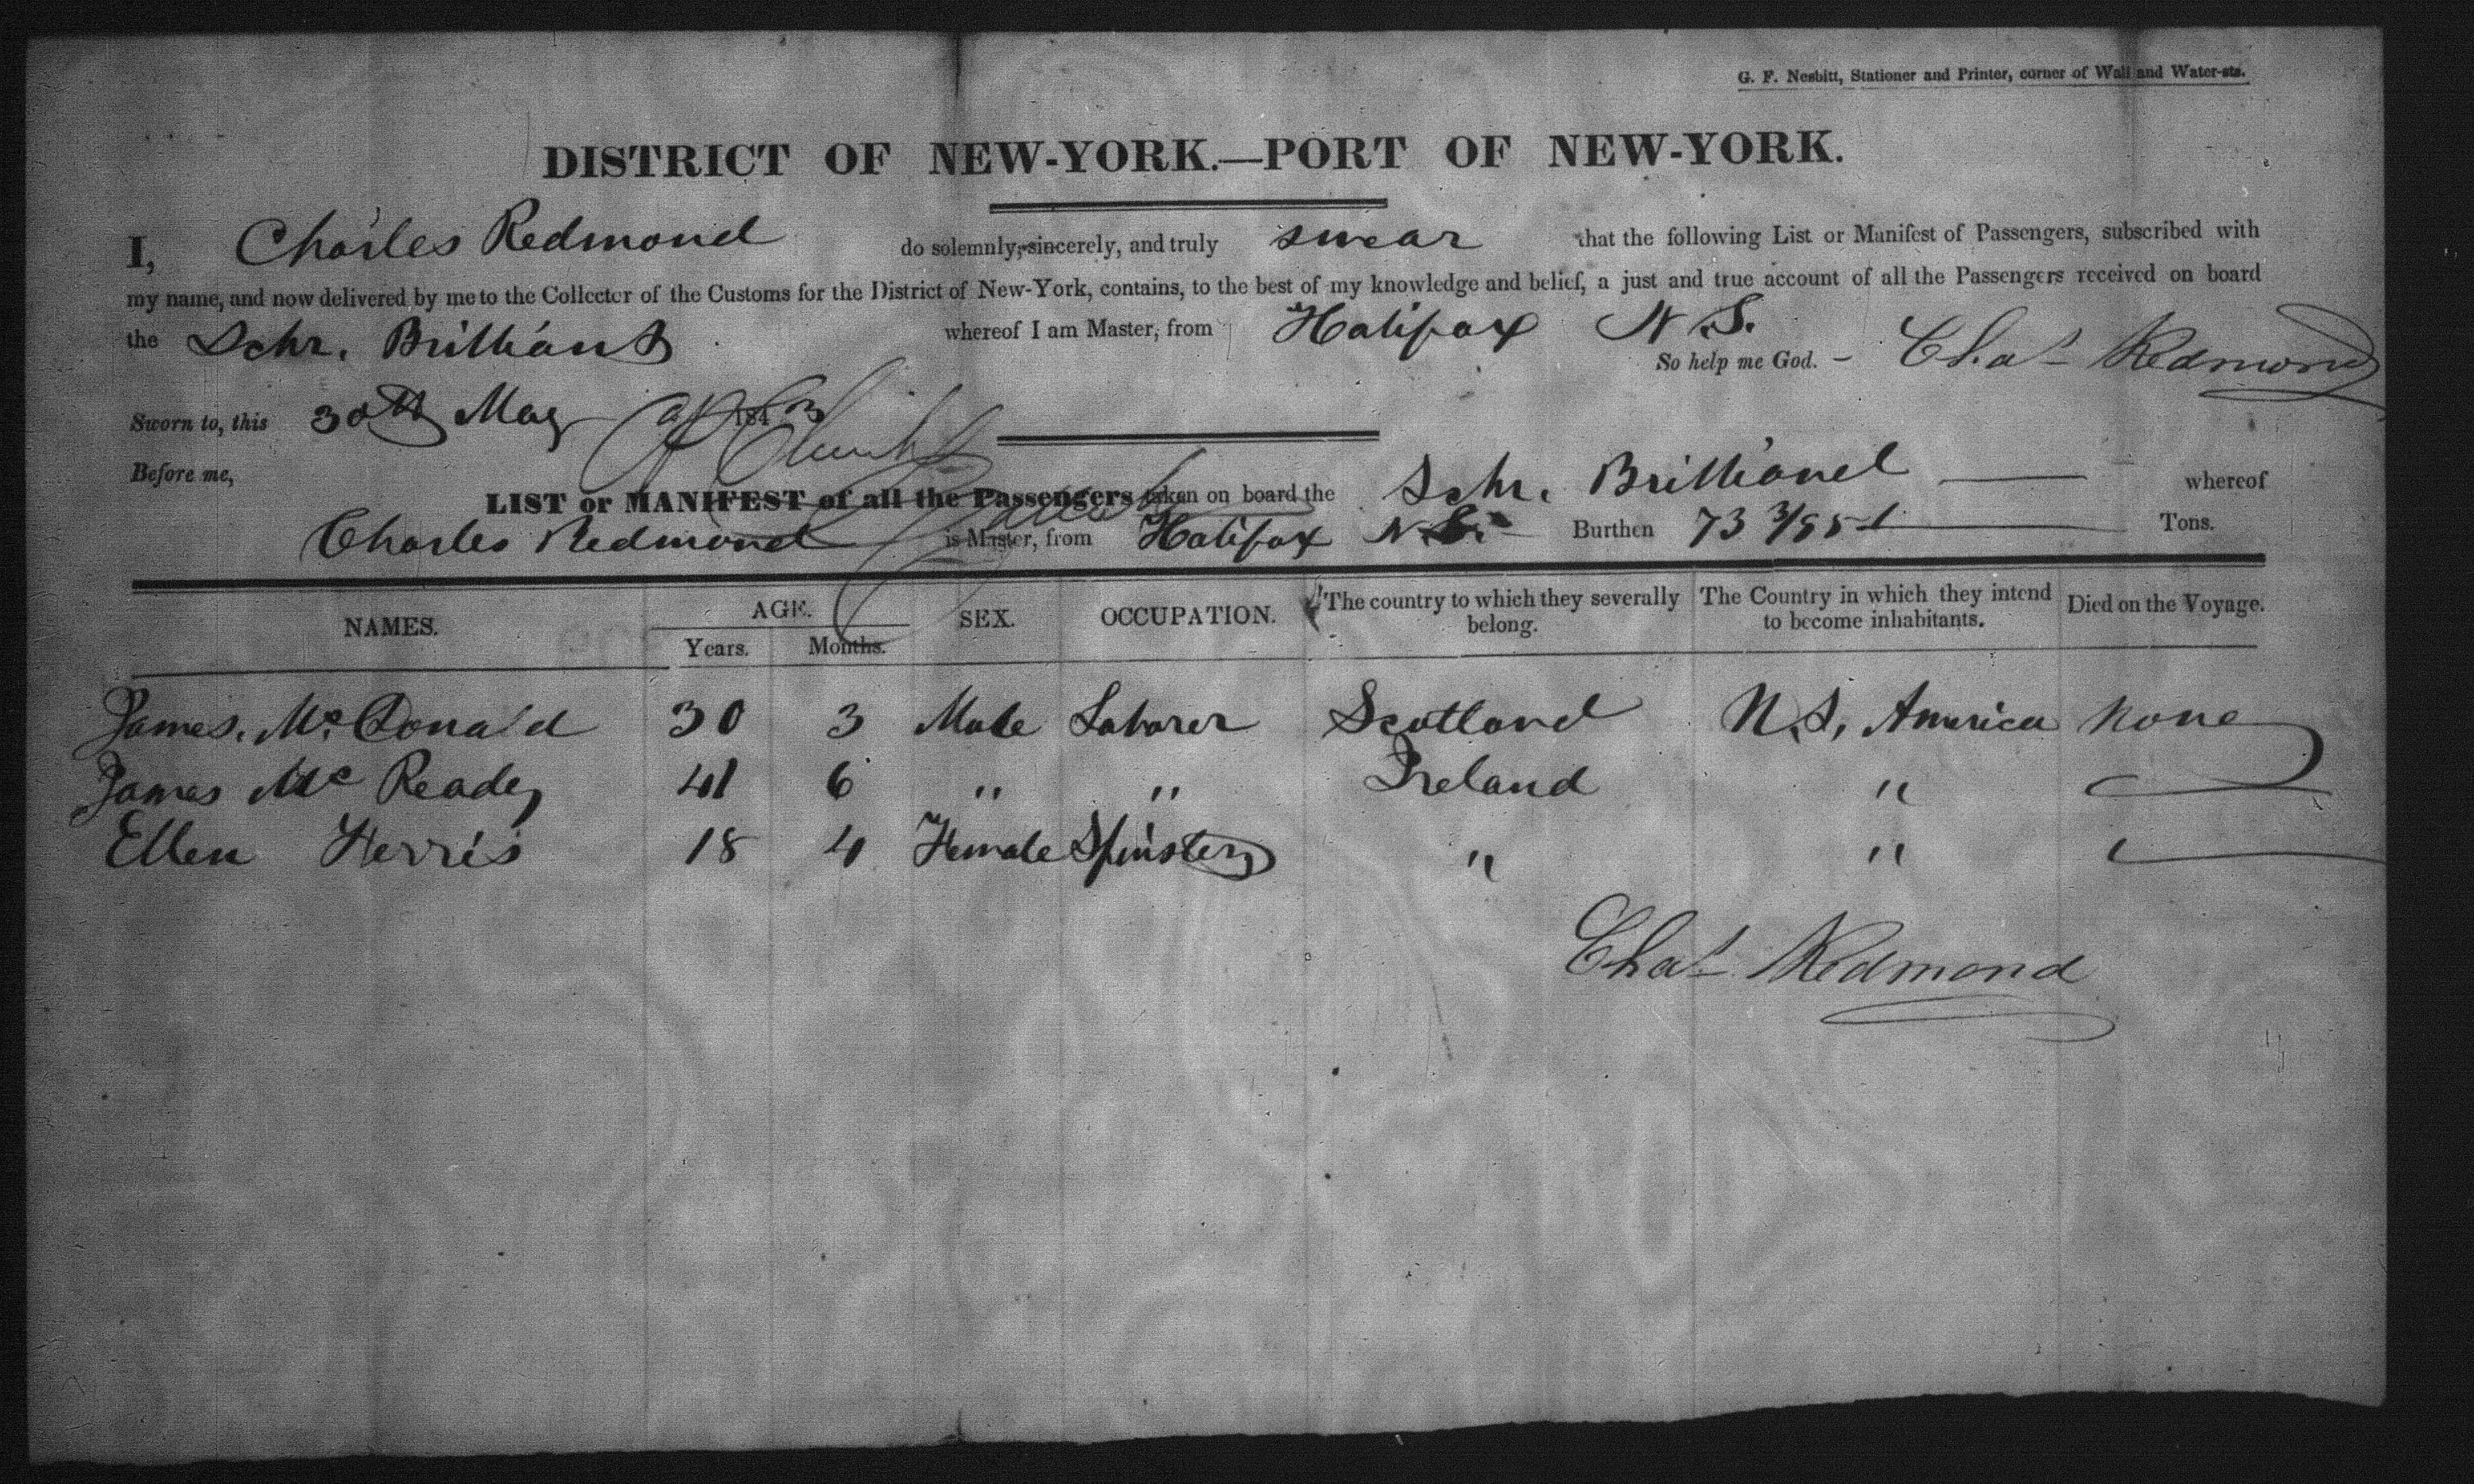 G. F. Nesbitt, Stationer and Printer, corner of Wall and Water-sts.
DISTRICT OF NEW-YORK.—PORT OF NEW-YORK.
I, Charles Redmond do solemnly, sincerely, and truly swear that the following List or Manifest of Passengers, subscribed with
my name, and now delivered by me to the Collector of the Customs for the District of New-York, contains, to the best of my knowledge and belief, a just and true account of all the Passengers received on board
the Schr. Brilliant whereof I am Master, from Halifax N.S.
So help me God. — Chas Redmond
Sworn to, this 30th May 1843
Before me,
LIST or MANIFEST of all the Passengers taken on board the Schr. Brilliant whereof
Charles Redmond is Master, from Halifax N.S. Burthen 73 3/95 Tons.
NAMES. AGE. SEX. OCCUPATION. The country to which they severally belong. The Country in which they intend to become inhabitants. Died on the Voyage.
Years. Months.
James. McDonald 30 3 Male Laborer Scotland N.S, America None
James Mc Ready 41 6 " " Ireland "
Ellen Herris 18 4 Female Spinster " "
Chas Redmond